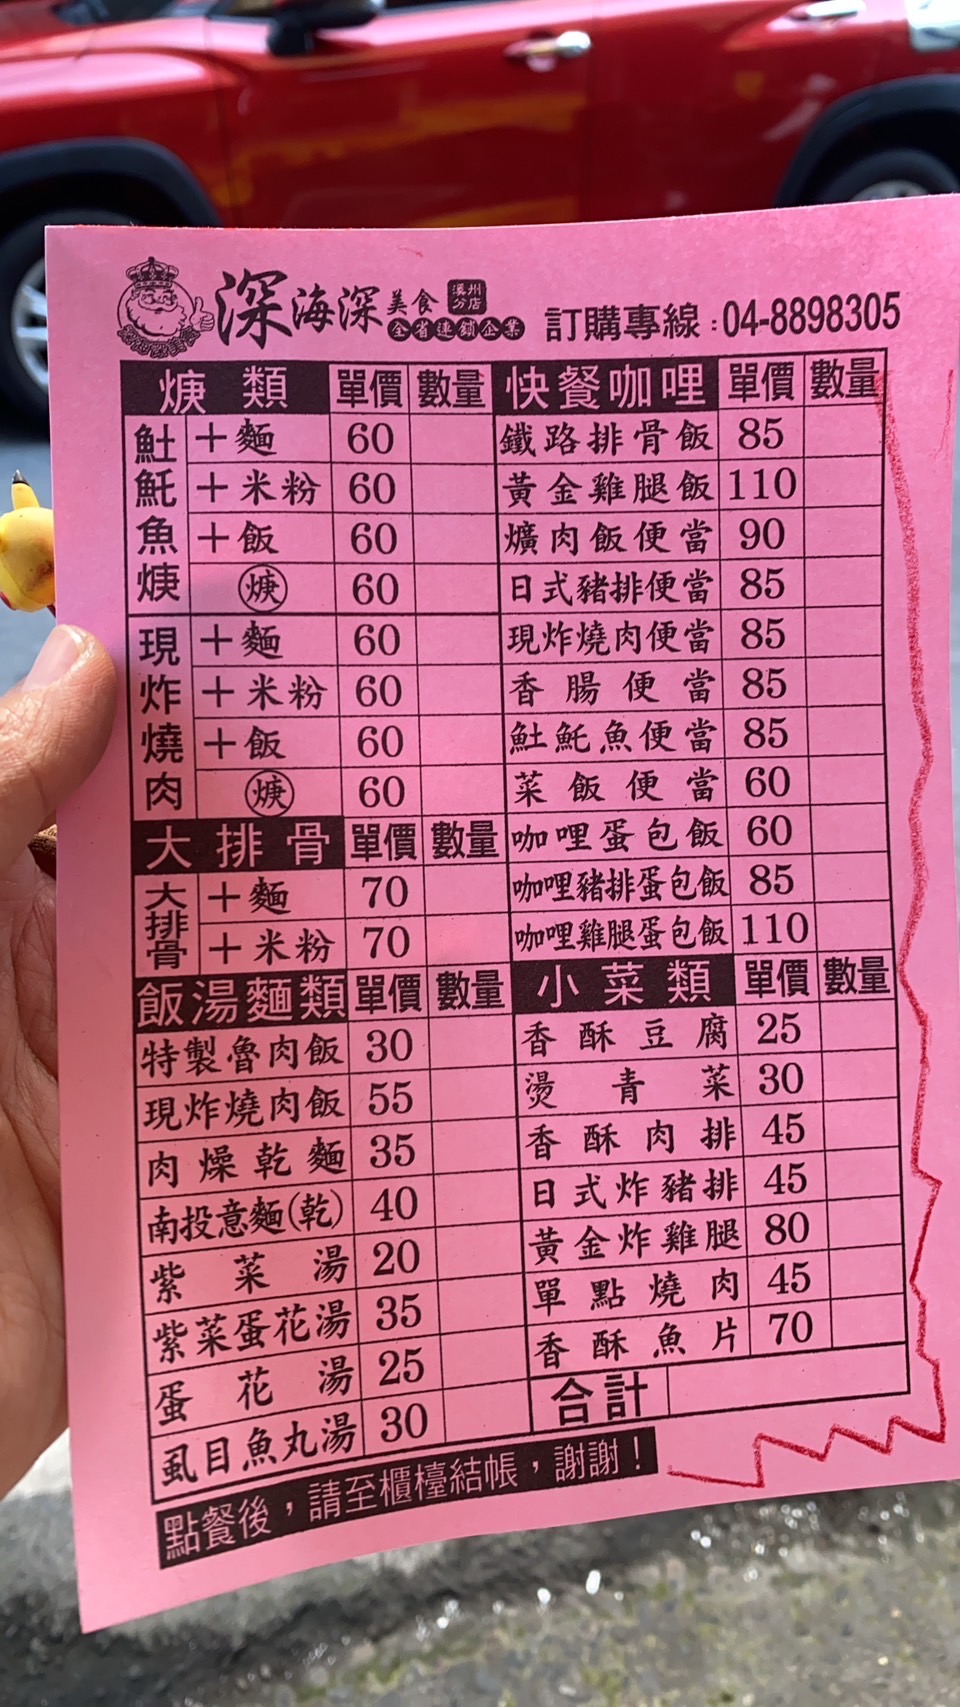 深海深美食 溪州分店
全省連鎖企業
訂購專線:04-8898305
焿類 單價 數量
魠魠魚焿
+麵 60
+米粉 60
+飯 60
焿 60
現炸燒肉
+麵 60
+米粉 60
+飯 60
焿 60
大排骨 單價 數量
大排骨
+麵 70
+米粉 70
飯湯麵類 單價 數量
特製魯肉飯 30
現炸燒肉飯 55
肉燥乾麵 35
南投意麵(乾) 40
紫菜湯 20
紫菜蛋花湯 35
蛋花湯 25
虱目魚丸湯 30
快餐咖哩 單價 數量
鐵路排骨飯 85
黃金雞腿飯 110
爌肉飯便當 90
日式豬排便當 85
現炸燒肉便當 85
香腸便當 85
魠魠魚便當 85
菜飯便當 60
咖哩蛋包飯 60
咖哩豬排蛋包飯 85
咖哩雞腿蛋包飯 110
小菜類 單價 數量
香酥豆腐 25
燙青菜 30
香酥肉排 45
日式炸豬排 45
黃金炸雞腿 80
單點燒肉 45
香酥魚片 70
合計
點餐後，請至櫃檯結帳，謝謝！